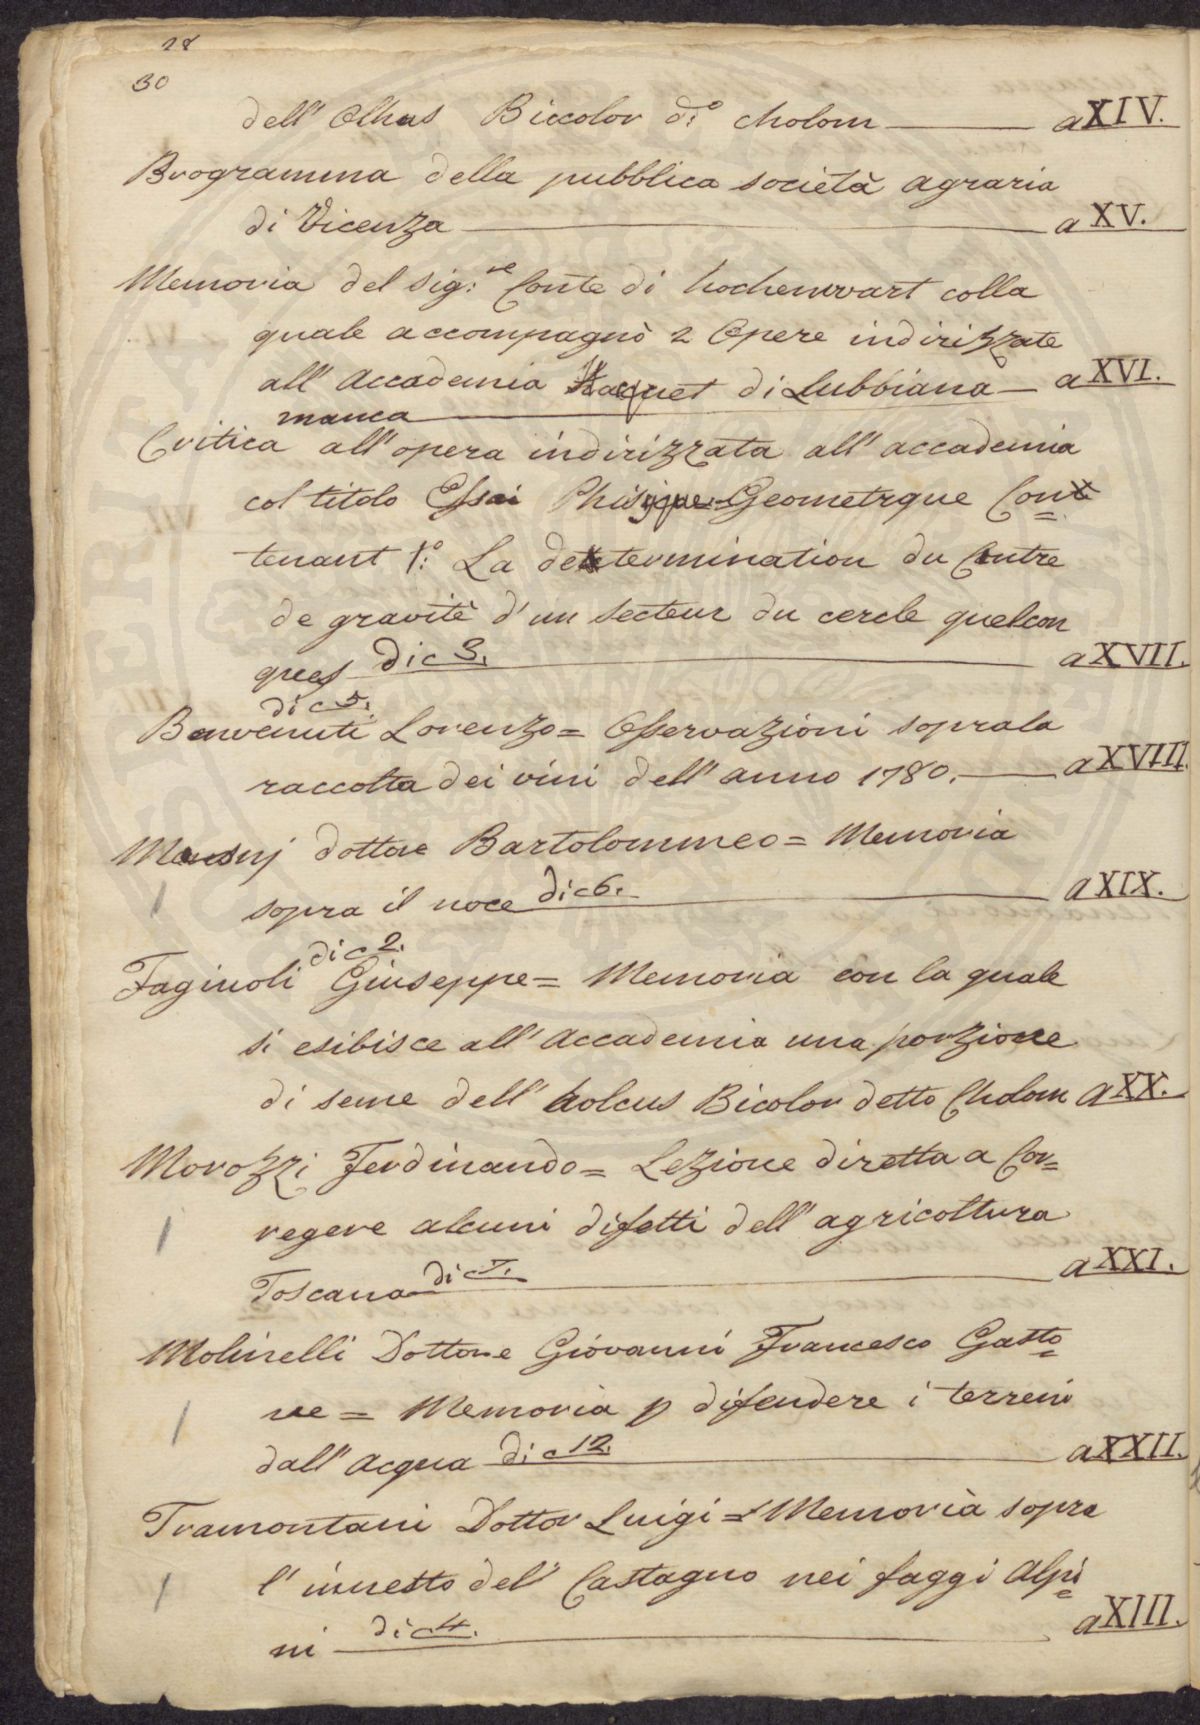 28
30
dell' Olhus Biccolor d.º cholom a XIV.
Programma della pubblica società agraria
di Vicenza a XV.
Memoria del sig:re Conte di hochenwart colla
quale accompagnò 2 Opere indirizzate
all' Accademia Haquet di Lubbiana a XVI.
manca
Critica all' opera indirizzata all' accademia
col titolo Essai Phisique Geometrque Con=
tenant 1º: La determination du Centre
de gravitè d'un secteur du cercle quelcon
ques di c 3. a XVII.
di c 5.
Benvenuti Lorenzo = Osservazioni sopra la
raccolta dei vini dell' anno 1780. a XVIII.
dottore Bartolommeo = Memoria
sopra il noce di c 6. a XIX.
di c 2.
Faginoli Giuseppe = Memoria con la quale
si esibisce all' Accademia una porzione
di seme dell' holcus Bicolor detto Cholom a XX.
Morozzi Ferdinando = Lezione diretta a Cor=
regere alcuni difetti dell' agricoltura
Toscana di c 7. a XXI.
Molinelli Dottore Giovanni Francesco Gasto=
ne = Memoria p difendere i terreni
dall' Acqua di c 12. a XXII.
Tramontani Dottor Luigi = Memoria sopra
l' innesto del' Castagno nei faggi Alpi=
ni di c 4. a XIII.